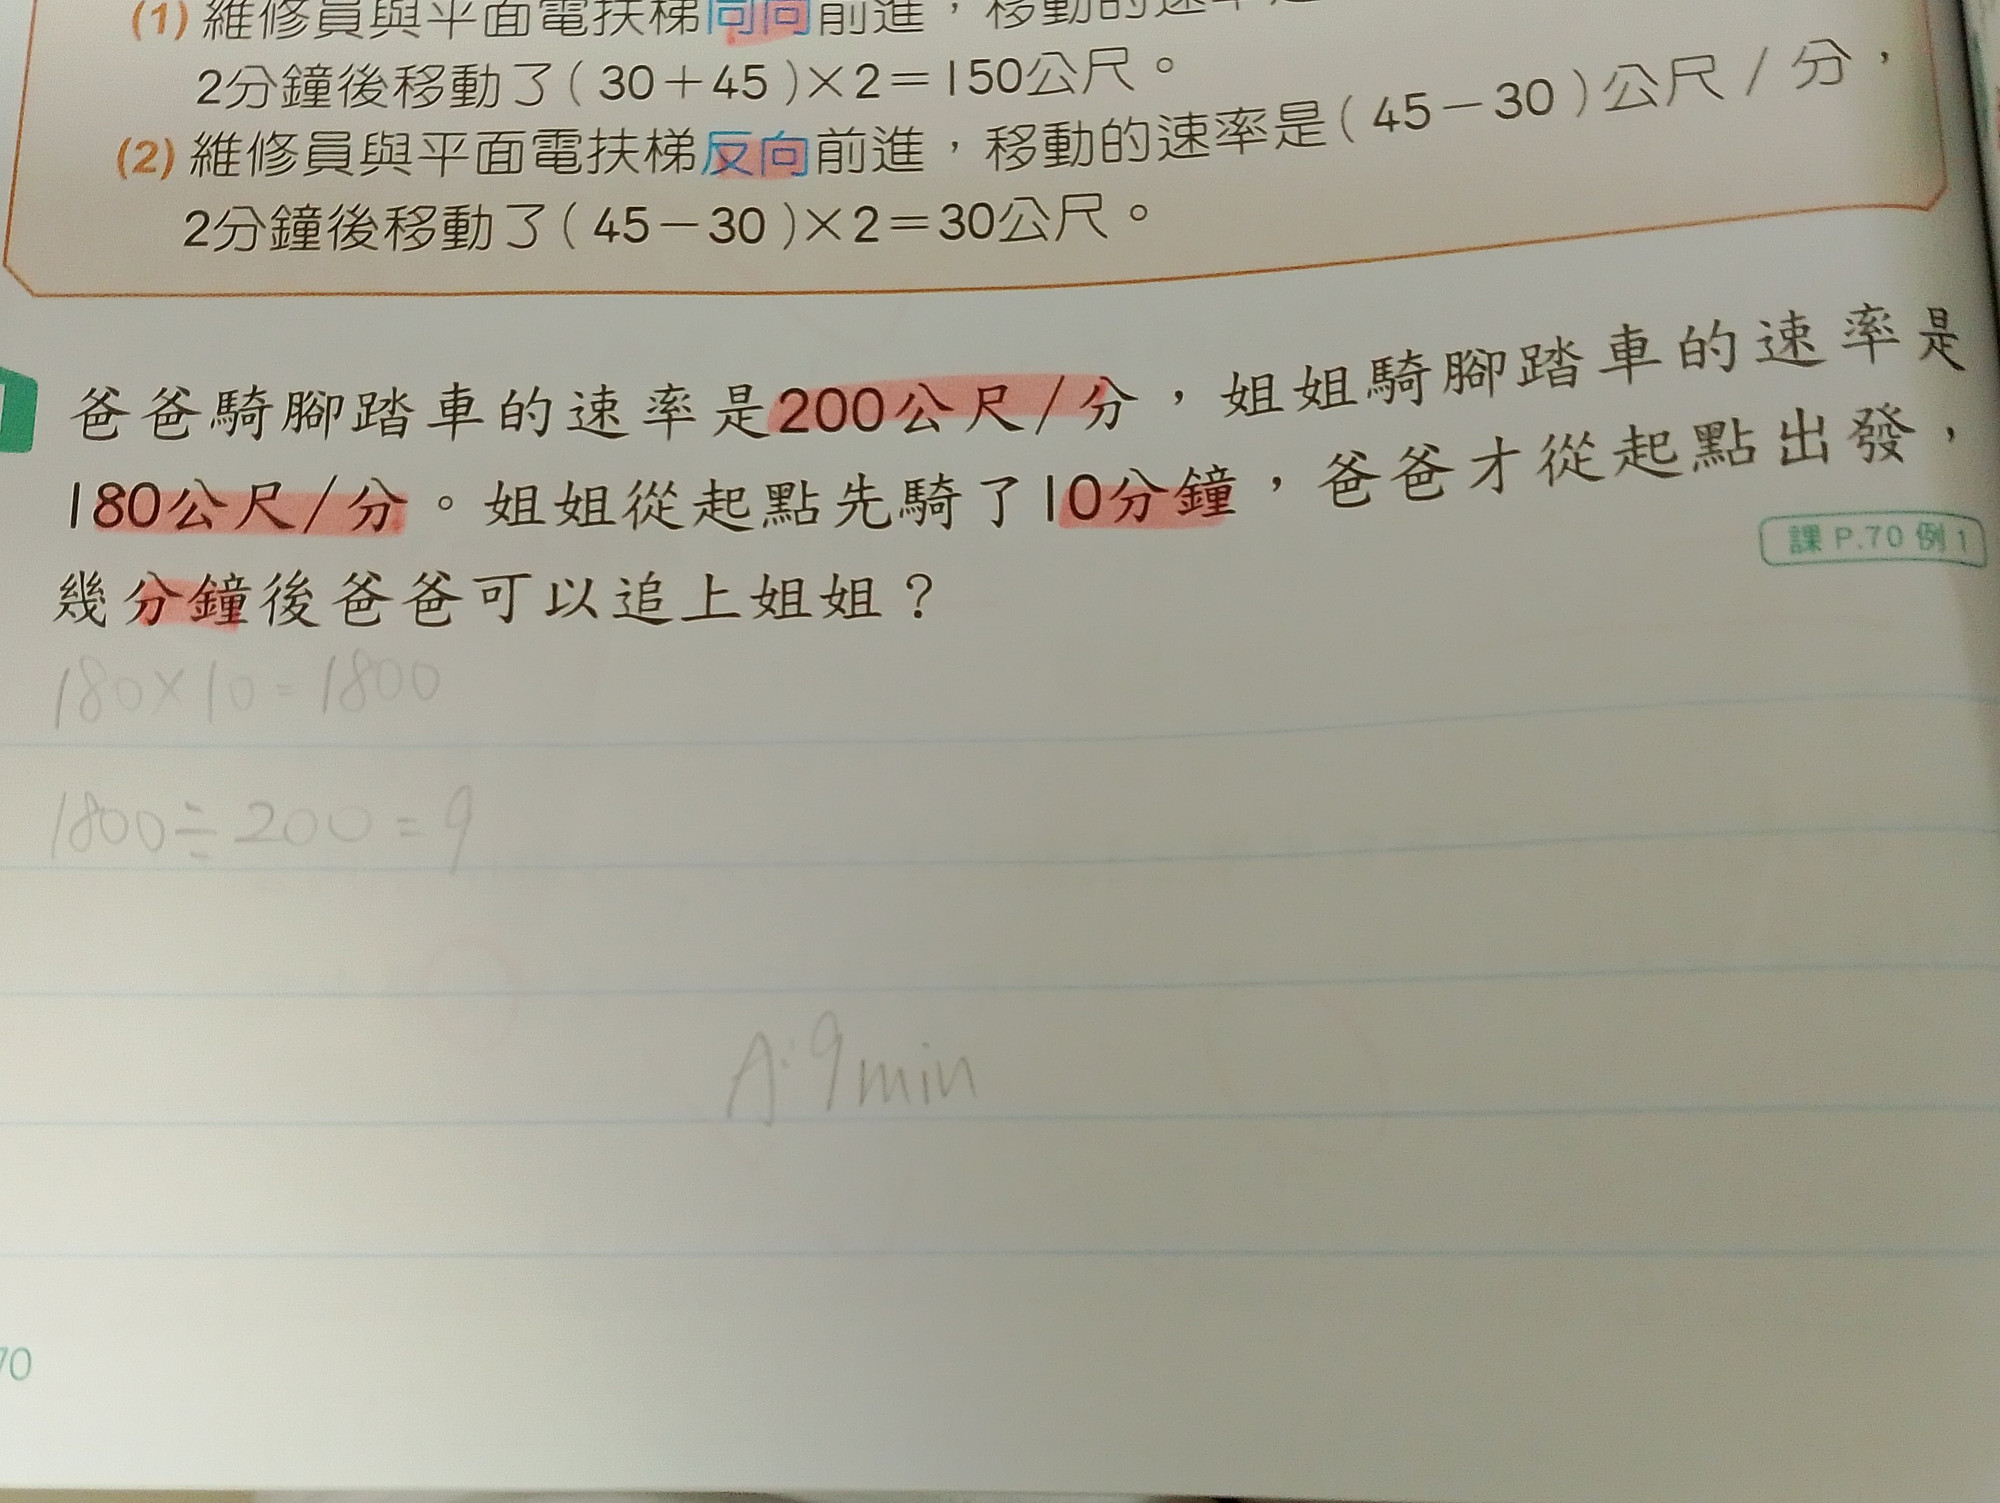 (1) 維修員與平面電扶梯同向前進，移動的速率是
2分鐘後移動了(30＋45)×2＝150公尺。
(2) 維修員與平面電扶梯反向前進，移動的速率是(45－30)公尺/分，
2分鐘後移動了(45－30)×2＝30公尺。
爸爸騎腳踏車的速率是200公尺/分，姐姐騎腳踏車的速率是
180公尺/分。姐姐從起點先騎了10分鐘，爸爸才從起點出發，
幾分鐘後爸爸可以追上姐姐？
課 P.70 例 1
180×10=1800
1800÷200=9
A:9min
70